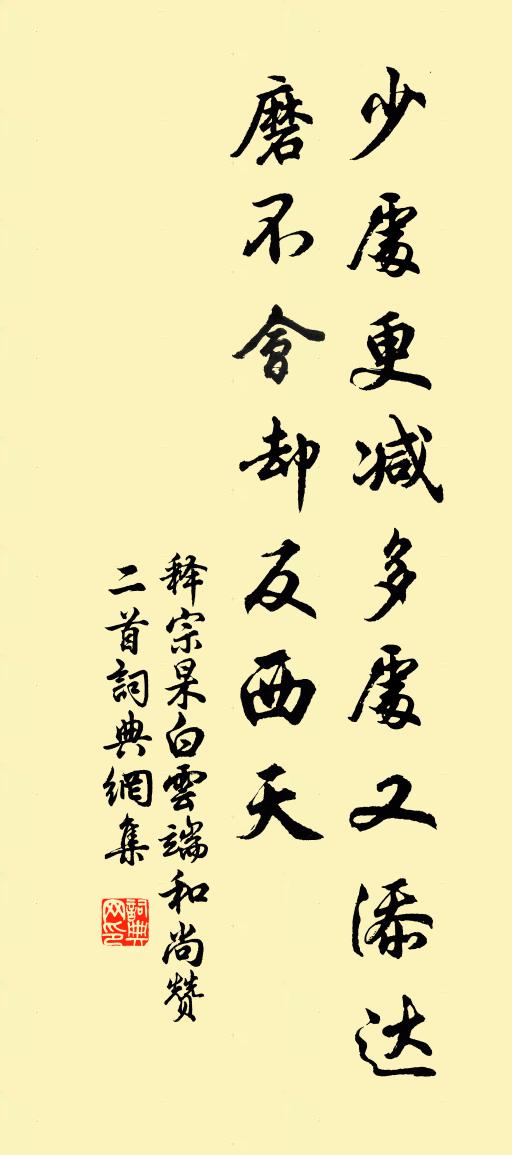 少處更减多處又添达
磨不會却反西天
释宗杲白雲端和尚赞
二首詞典網集
詞典网印